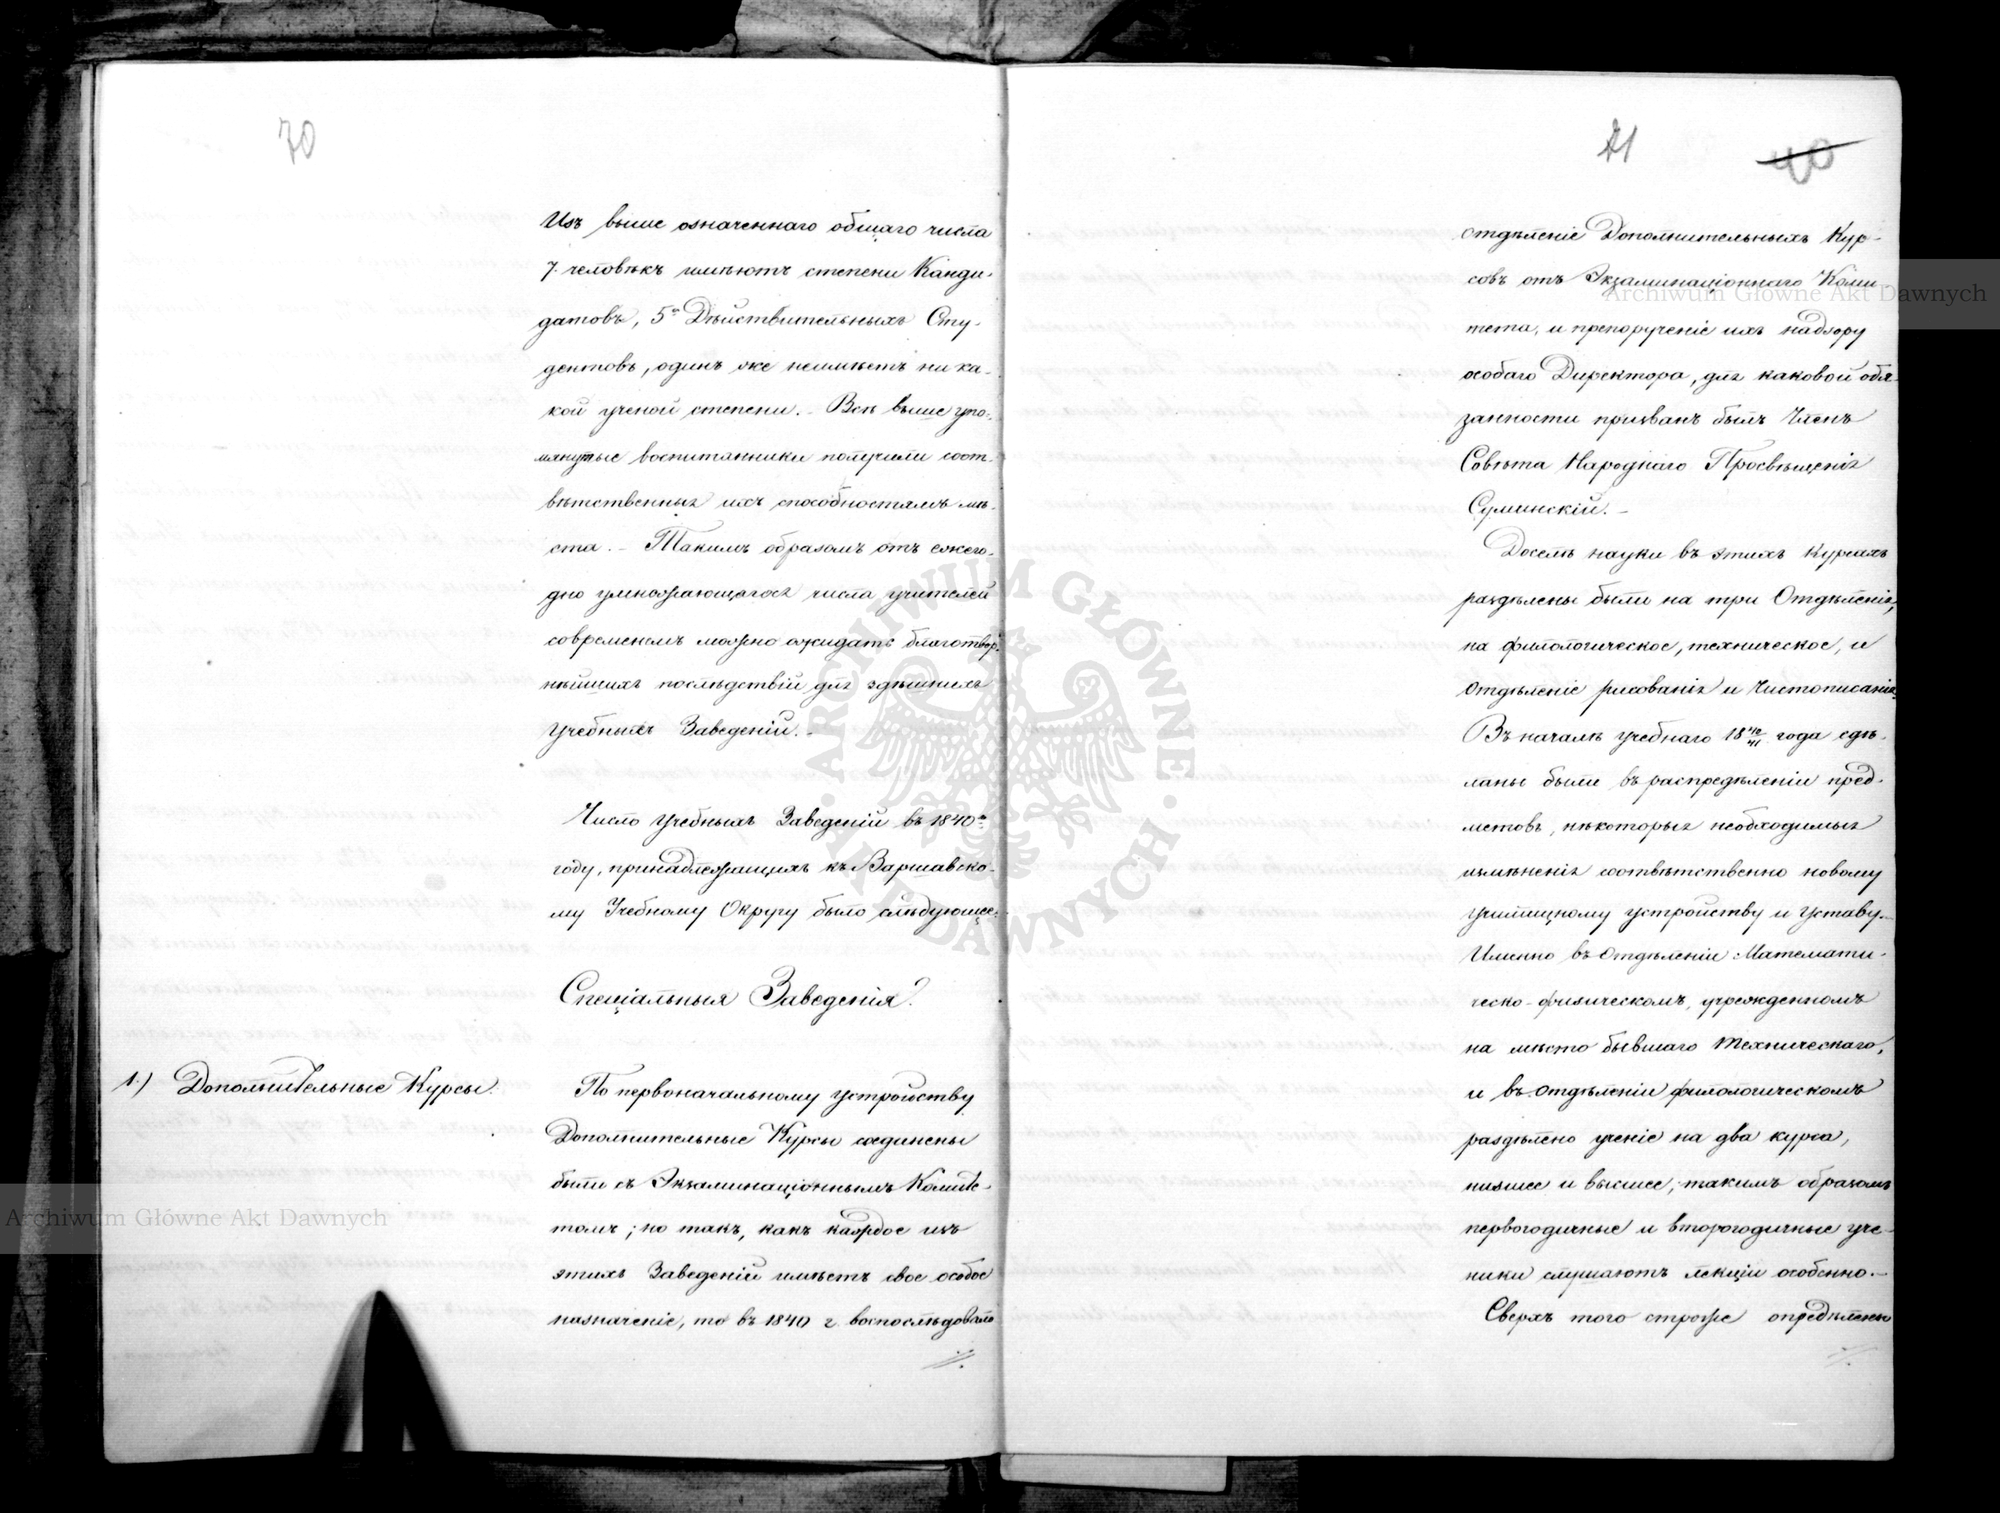 70
Изъ выше означеннаго общаго числа
7. человѣкъ имѣютъ степени Канди-
датовъ, 5ъ Дѣйствительныхъ Сту-
дентовъ, одинъ же неимѣетъ ни ка-
кой ученой степени. - Всѣ выше упо-
мянутые воспитанники получили соот-
вѣтственныя ихъ способностямъ мѣ-
ста. - Такимъ образомъ отъ ежего-
дно умножающагося числа учителей
современемъ можно ожидать благотвор-
нѣйшихъ послѣдствій для здѣшнихъ
учебныхъ Заведеній. -
Число учебныхъ Заведеній въ 1840мъ
году, принадлежащихъ къ Варшавско-
му Учебному Округу было слѣдующее:
Спеціальныя Заведенія.
1.) Дополнительные Курсы.
По первоначальному устройству
Дополнительные Курсы соединены
были съ Экзаминаціоннымъ Комите-
томъ; но такъ, какъ каждое изъ
этихъ Заведеній имѣетъ свое особое
назначеніе, то въ 1840 г воспослѣдовало
71
40
отдѣленіе Дополнительныхъ Кур-
совъ отъ Экзаминаціоннаго Коми-
тета, и препорученіе ихъ надзору
особаго Директора, для каковой обя-
занности призванъ былъ Членъ
Совѣта Народнаго Просвѣщенія
Суминскій. -
Доселѣ науки въ этихъ Курсахъ
раздѣлены были на три Отдѣленія,
на филологическое, техническое, и
отдѣленіе рисованія и Чистописанія.
Въ началѣ учебнаго 18 40/41 года сдѣ-
ланы были въ распредѣленіи пред-
метовъ, нѣкоторыя необходимыя
измѣненія соотвѣтственно новому
училищному устройству и уставу. -
Именно въ отдѣленіи Математи-
ческо-физическомъ, учрежденномъ
на мѣсто бывшаго техническаго,
и въ отдѣленіи филологическомъ
раздѣлено ученіе на два курса,
низшее и высшее; такимъ образомъ
первогодичные и второгодичные уче-
ники слушаютъ лекціи особенно. -
Сверхъ того строже опредѣлены
Archiwum Główne Akt Dawnych
Archiwum Główne Akt Dawnych
ARCHIWUM GŁÓWNE · AKT DAWNYCH ·